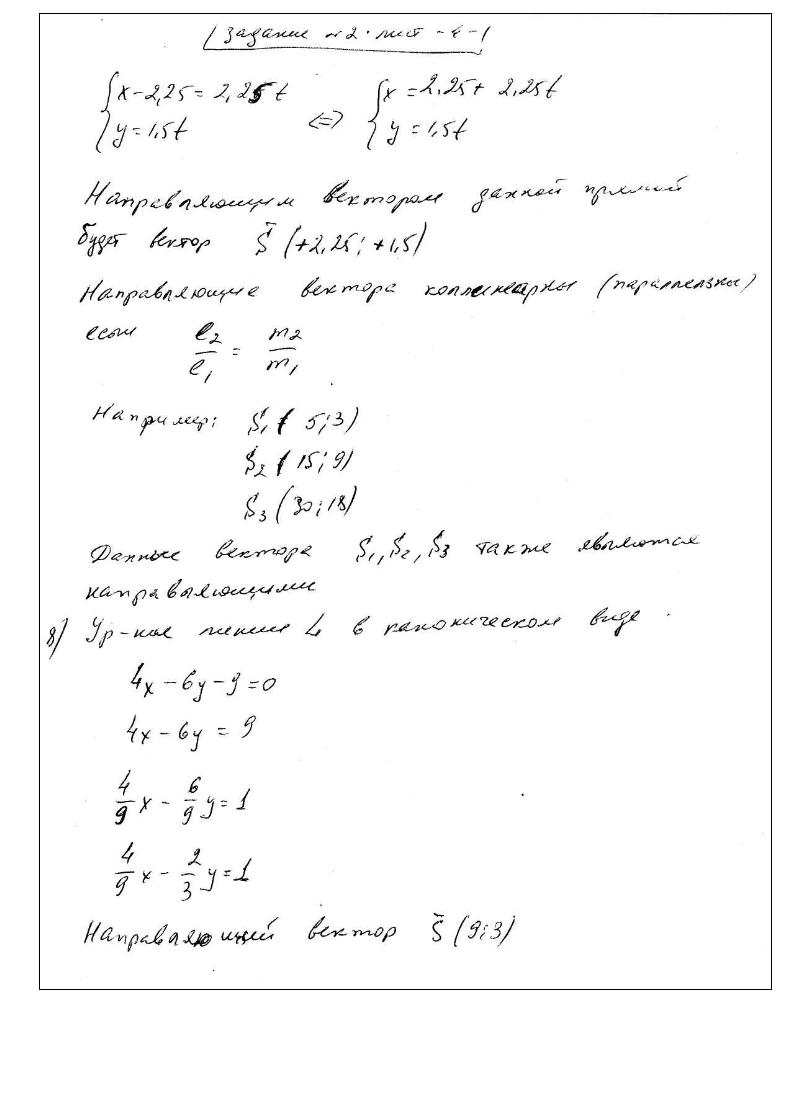 Задание №2. лист -4-1
{x-2,25=2,25t {x=2,25+2,25t
{y=1,5t <=> {y=1,5t
Направляющим вектором данной прямой
будет вектор S̄ (+2,25; +1,5)
Направляющие вектора коллинеарны (параллельны)
если l₂/l₁ = m₂/m₁
Например: S₁ ( 5;3)
S₂ ( 15; 9)
S₃ (30; 18)
Данные вектора S₁, S₂, S₃ также являются
направляющими
8) Ур-ние линии L в каноническом виде.
4x-6y-9=0
4x-6y=9
4/9 x - 6/9 y=1
4/9 x - 2/3 y=1
Направляющий вектор S̄ (9;3)